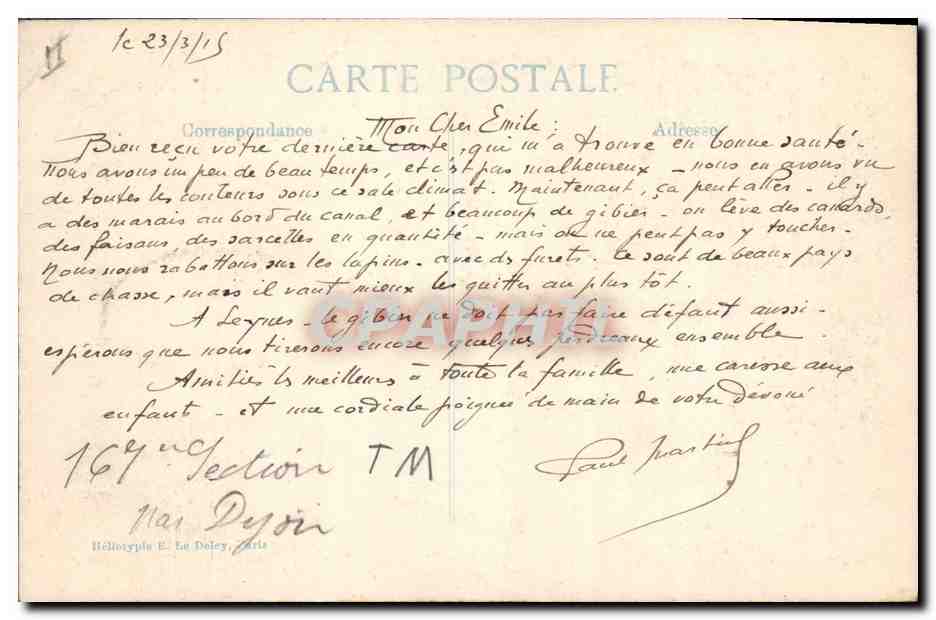 le 23/3/15
CARTE POSTALE
Correspondance
Adresse
Mon Cher Emile :
Bien reçu votre dernière carte, qui m'a trouvé en bonne santé -
Nous avons un peu de beau temps, et c'est pas malheureux - nous en avons vu
de toutes les couleurs sous ce sale climat. Maintenant, ça peut aller - il y
a des marais au bord du canal, et beaucoup de gibier - on lève des canards,
des faisans, des sarcelles en quantité - mais on ne peut pas y toucher -
Nous nous rabattons sur les lapins - avec ds furets. Ce sont de beaux pays
de chasse, mais il vaut mieux les quitter au plus tôt.
A Leynes - le gibier ne doit pas faire défaut aussi -
espérons que nous tirerons encore quelques perdreaux ensemble -
Amitiés les meilleures à toute la famille, une caresse aux
enfants - et une cordiale poignée de main de votre dévoué
Paul Martin
167me Section TM
par Dijon
Héliotypie E. Le Deley, Paris
CPAPHIL